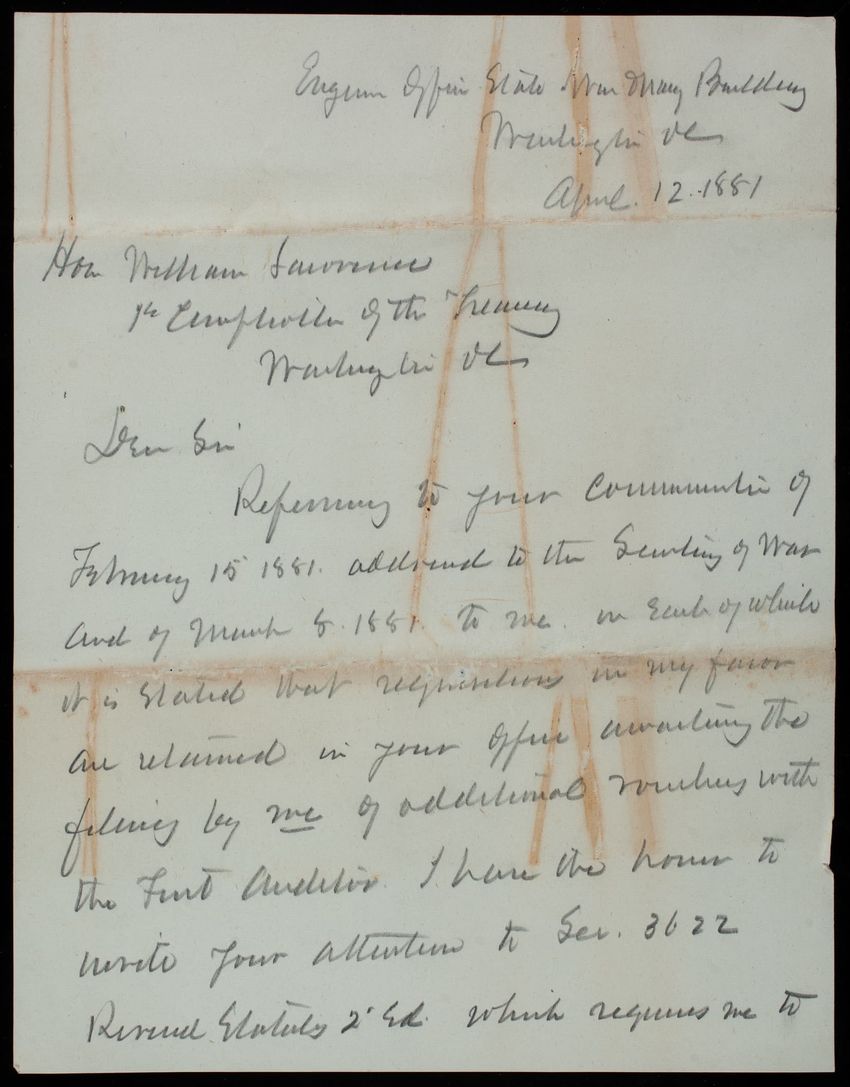 Engineer Office State War & Navy Building
Washington DC
April. 12. 1881
Hon William Lawrence
1st Comptroller of the Treasury
Washington DC
Dear Sir
Referring to your communication of
February 15 1881. addressed to the Secretary of War
and of March 8. 1881. to me. in each of which
it is stated that requisitions in my favor
are retained in your office awaiting the
filing by me of additional vouchers with
the First Auditor. I have the honor to
invite your attention to Sec. 3622
Revised Statutes 2d Ed. which requires me to